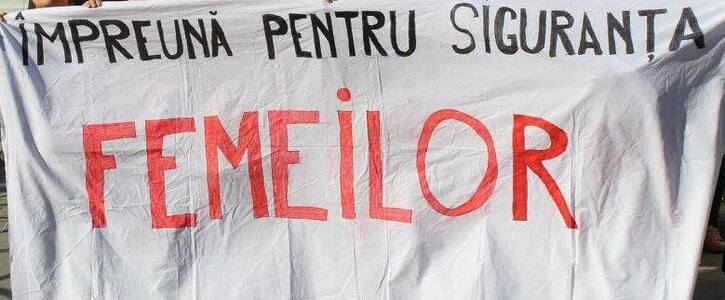 ÎMPREUNĂ PENTRU SIGURANȚA
FEMEiLOR